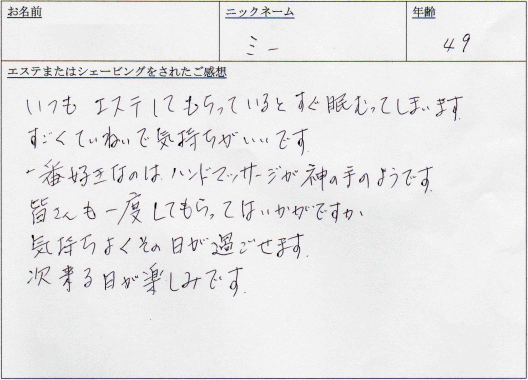 お名前 ニックネーム 年齢
ミー 49
エステまたはシェービングをされたご感想
いつも エステしてもらっているとすぐ眠むってしまいます。
すごくていねいで気持ちがいいです。
一番好きなのは、ハンドマッサージが神の手のようです。
皆さんも一度してもらってはいかがですか
気持ちよくその日が過ごせます。
次来る日が楽しみです。